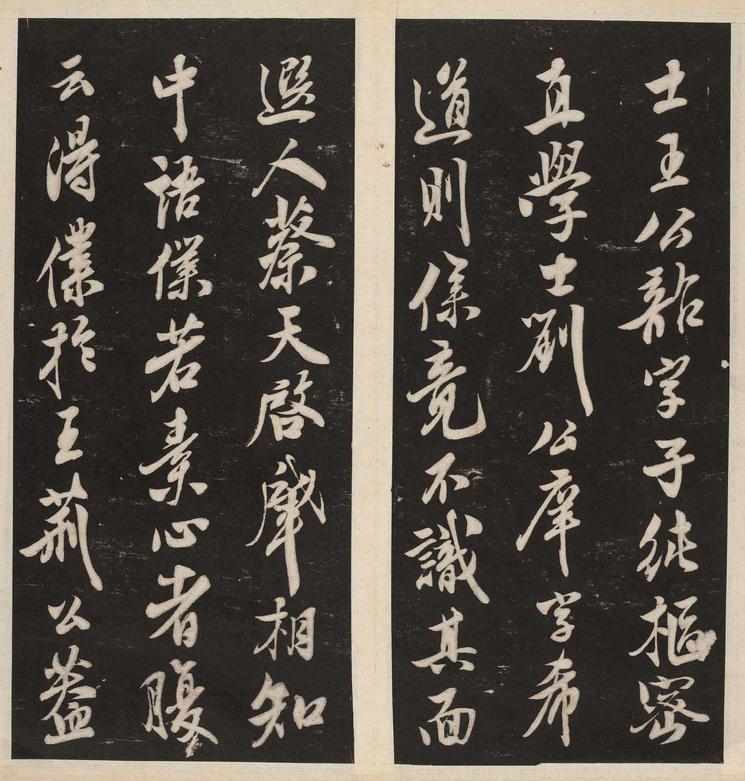 士王公韶字子純樞密
直學士劉公庠字希
道則僕竟不識其面
選人蔡天啓肇相知
中語僕若素心者腹
云得僕於王荊公蓋